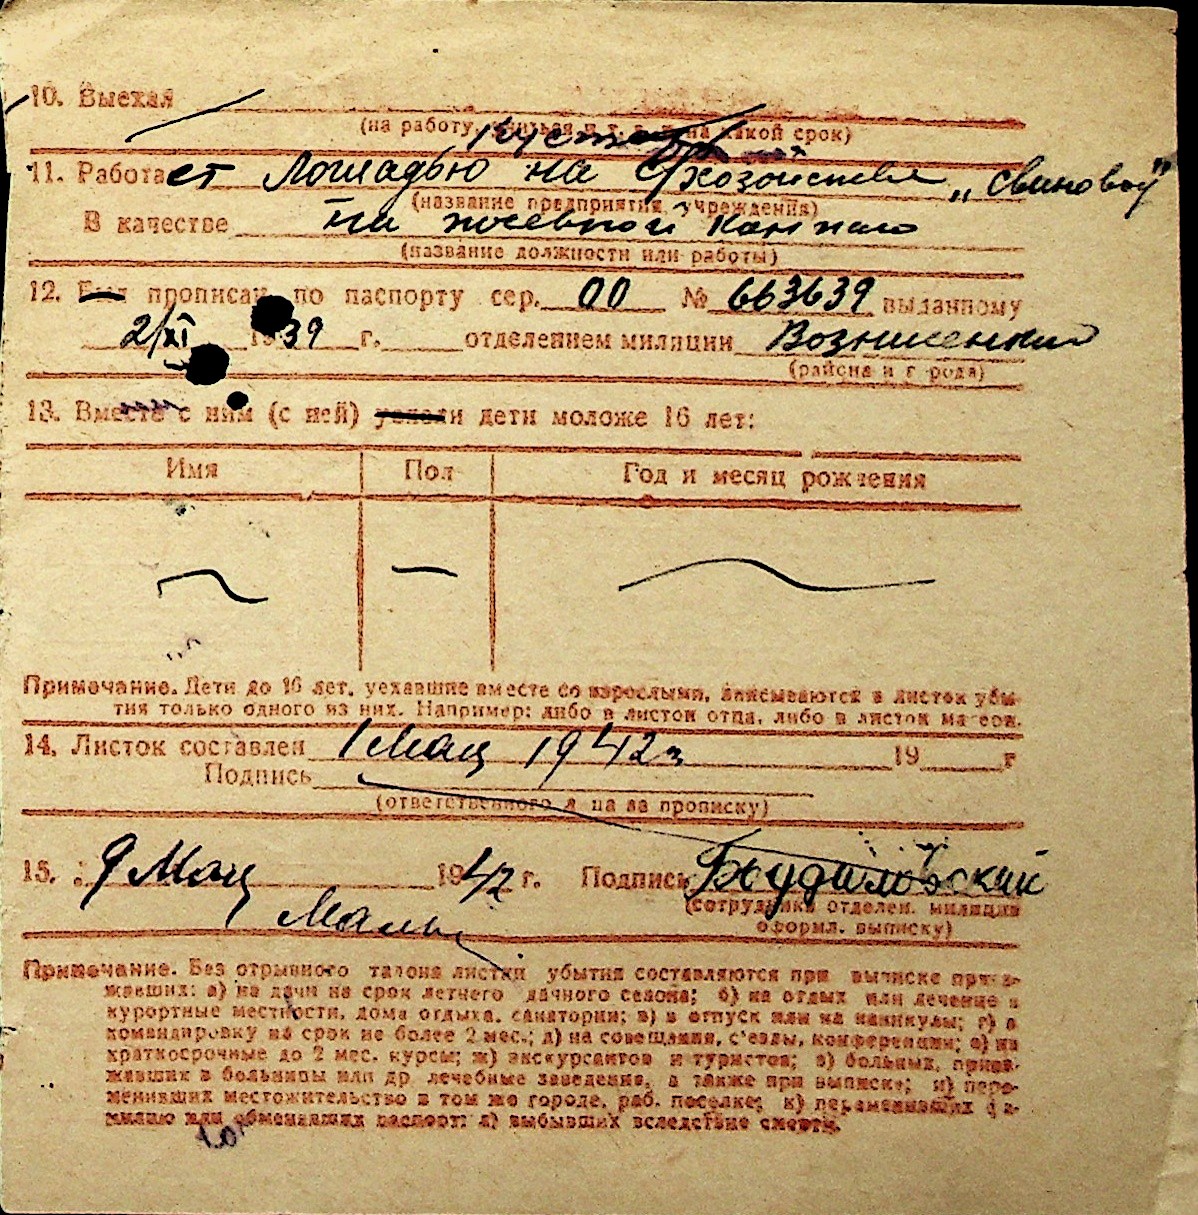 10. Выехал
(на работу, учиться и т. д. и на какой срок)
11. Работает Лошадью на с/хозяйстве „Свиновод"
(название предприятия, учреждения)
В качестве на посевной
(название должности или работы)
12. Был прописан по паспорту сер. 00 № 663639 выданному
2/XI 1939 г. отделением милиции
(района и города)
13. Вместе с ним (с ней) уехали дети моложе 16 лет:
Имя Пол Год и месяц рождения
Примечание. Дети до 16 лет, уехавшие вместе со взрослыми, вписываются в листок убы-
тия только одного из них. Например: либо в листок отца, либо в листок матери.
14. Листок составлен 1 Мац 1942 г 19 г
Подпись
(ответственного лица за прописку)
15. 9 Мац 1942 г. Подпись
(сотрудника отделен. милиции
оформл. выписку)
Примечание. Без отрывного талона листки убытия составляются при выписке приез-
жавших: а) на дачи на срок летнего дачного сезона; б) на отдых или лечение в
курортные местности, дома отдыха, санатории; в) в отпуск или на каникулы; г) в
командировку на срок не более 2 мес.; д) на совещания, с'езды, конференции; е) на
краткосрочные до 2 мес. курсы; ж) экскурсантов и туристов; з) больных, приез-
жавших в больницы или др лечебные заведения, а также при выписке; и) пере-
менивших местожительство в том же городе, раб. поселке; к) переменивших фа-
милию или обменявших паспорт; л) выбывших вследствие смерти.